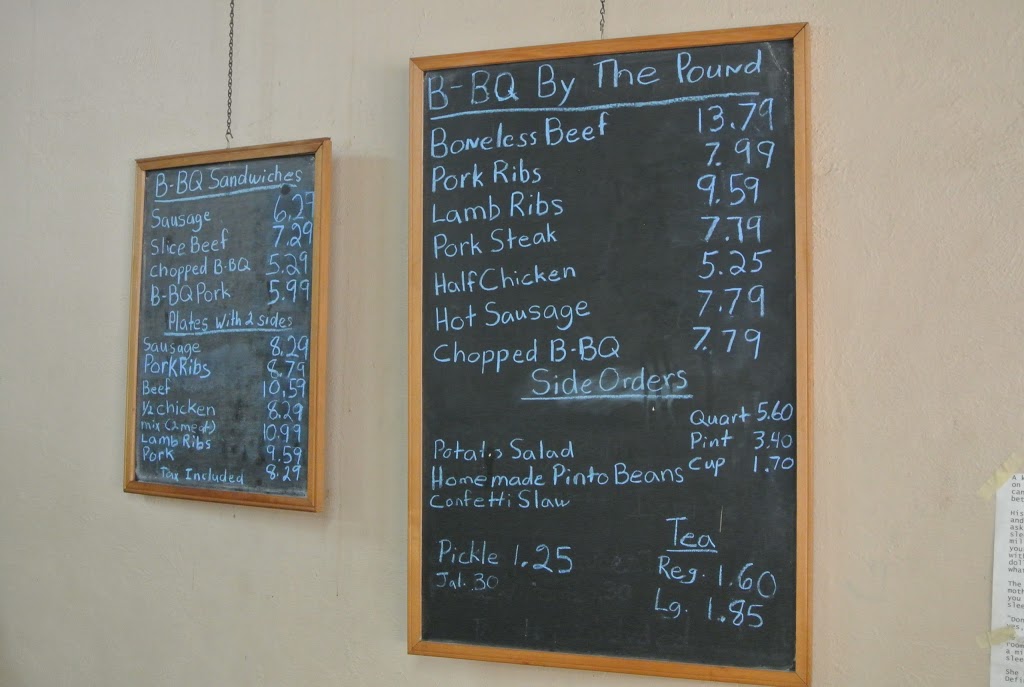 B-BQ Sandwiches
Sausage 6.29
Slice Beef 7.29
Chopped B-BQ 5.29
B-BQ Pork 5.99
Plates With 2 sides
Sausage 8.29
Pork Ribs 8.79
Beef 10.59
1/2 chicken 8.29
mix (2meat) 10.99
Lamb Ribs 9.59
Pork 8.29
Tax Included
B-BQ By The Pound
Boneless Beef 13.79
Pork Ribs 7.99
Lamb Ribs 9.59
Pork Steak 7.79
Half Chicken 5.25
Hot Sausage 7.79
Chopped B-BQ 7.79
Side Orders
Quart 5.60
Pint 3.40
Cup 1.70
Potato Salad
Homemade Pinto Beans
Confetti Slaw
Pickle 1.25
Jal. .30
Tea
Reg. 1.60
Lg. 1.85